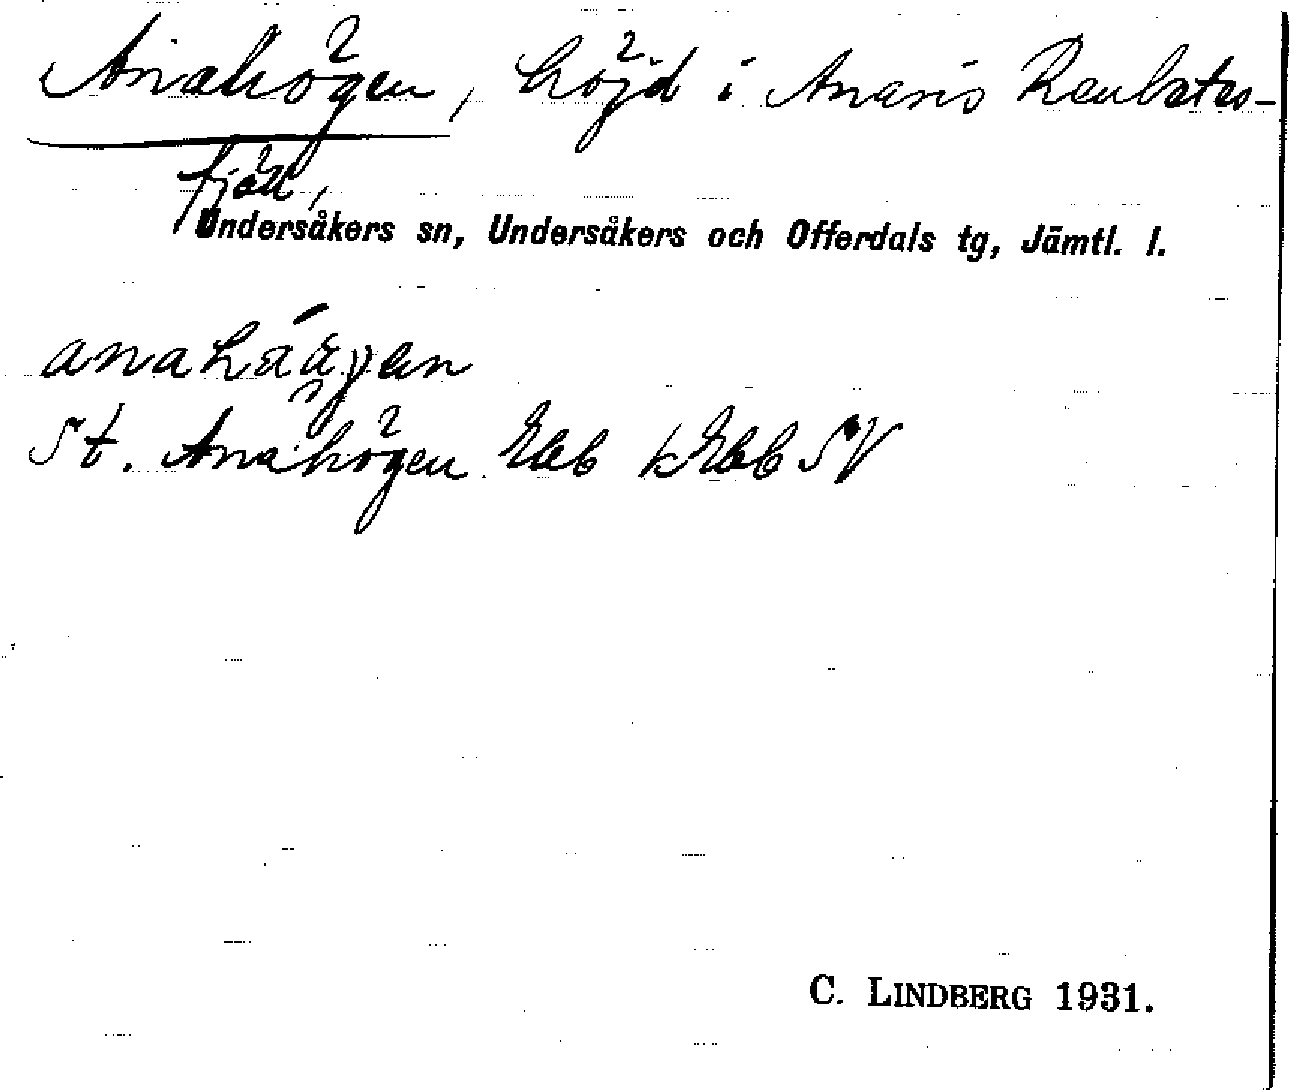 Anahögen, höjd i Anaris Renbetes-
fjäll,
Undersåkers sn, Undersåkers och Offerdals tg, Jämtl. l.
St. Anahögen Ebb kEbb SV
C. LINDBERG 1931.